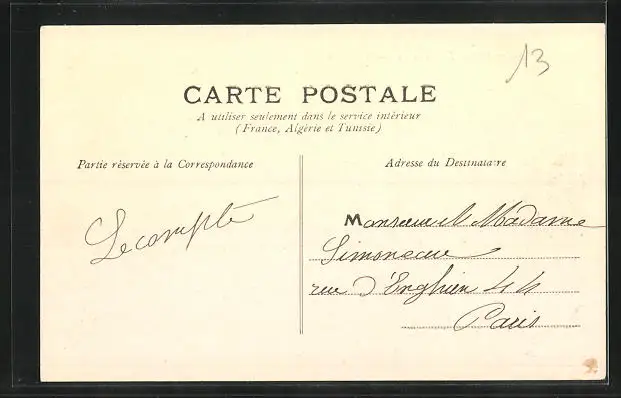 13
CARTE POSTALE
A utiliser seulement dans le service intérieur
(France, Algérie et Tunisie)
Partie réservée à la Correspondance
Adresse du Destinataire
Lecompte
Monsieur et Madame
Simoneau
rue d'Enghien 44
Paris